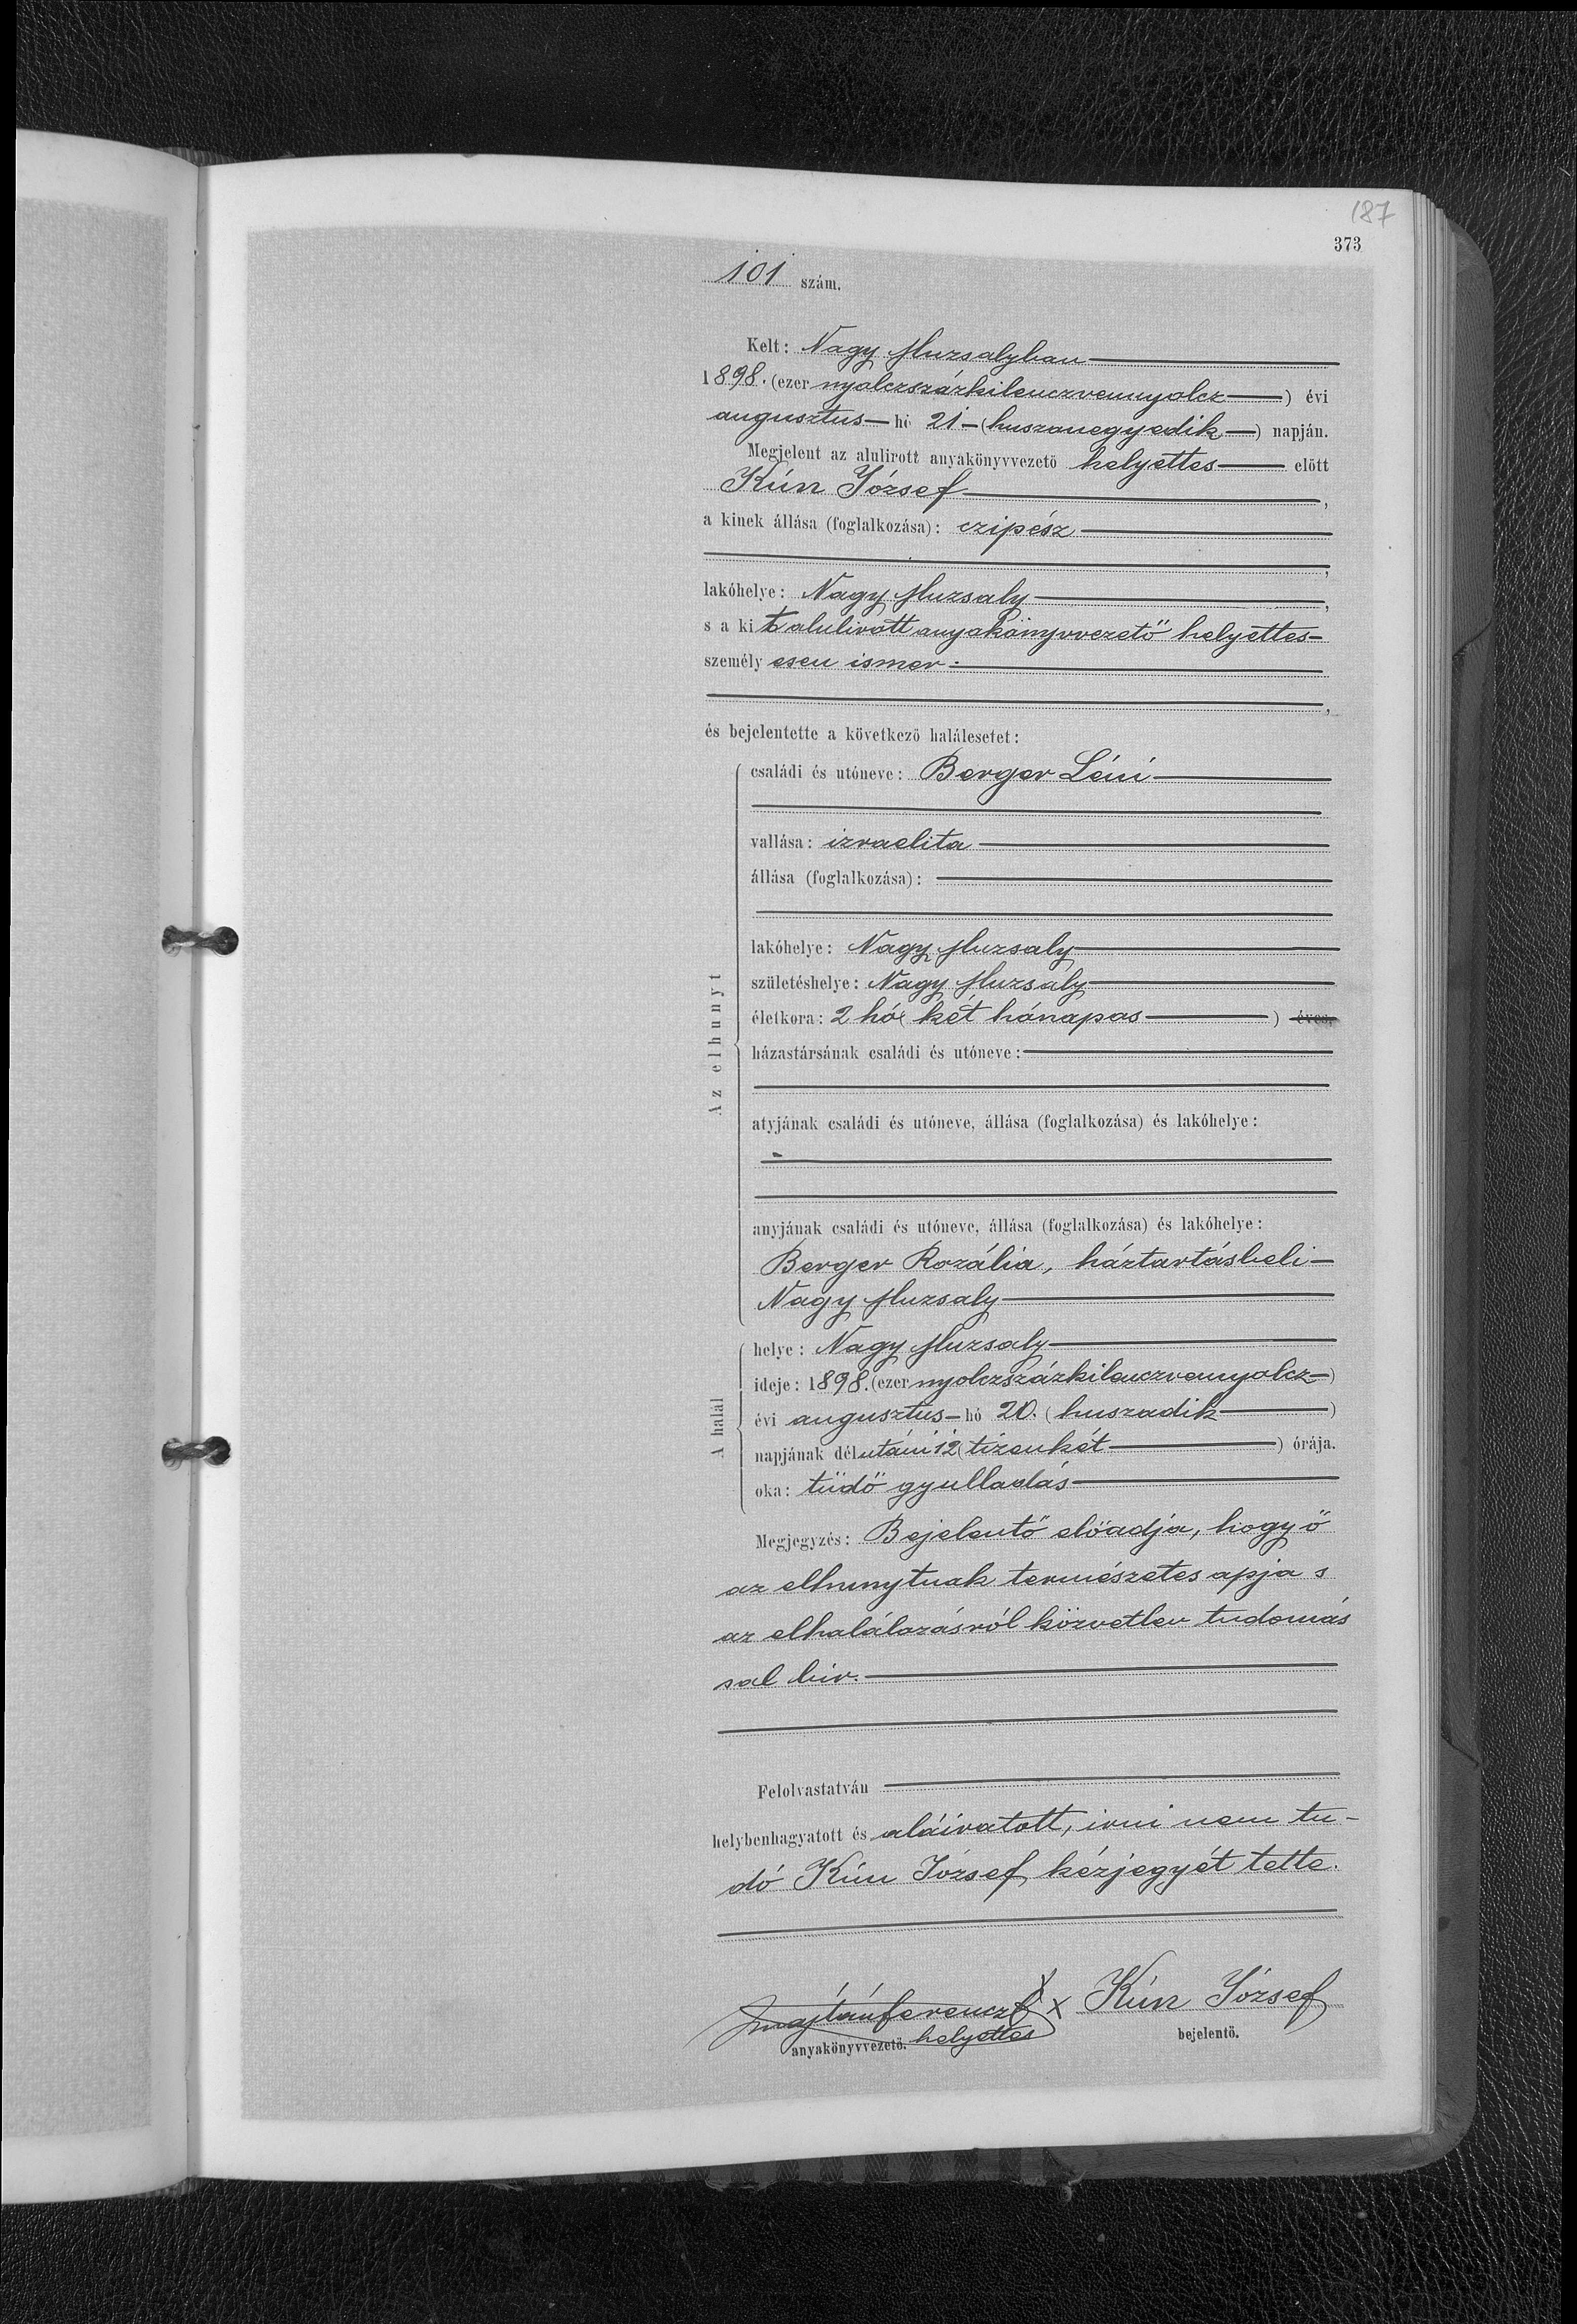 187
373
101 szám.
Kelt: Nagy Muzsalyban
1898. (ezer nyolczszázkilenczvennyolcz) évi
augusztus hó 21 (huszonegyedik) napján.
Megjelent az alulirott anyakönyvvezető helyettes előtt
Kún József,
a kinek állása (foglalkozása): czipész
,
lakóhelye: Nagy Muzsaly,
s a kit alulirott anyakönyvvezető helyettes
személyesen ismer
,
és bejelentette a következő halálesetet:
Az elhunyt
családi és utóneve: Berger Léni
vallása: izraelita
állása (foglalkozása):
lakóhelye: Nagy Muzsaly
születéshelye: Nagy Muzsaly
életkora: 2 hó (két hónapos) éves,
házastársának családi és utóneve:
atyjának családi és utóneve, állása (foglalkozása) és lakóhelye:
anyjának családi és utóneve, állása (foglalkozása) és lakóhelye:
Berger Rozália, háztartásbeli
Nagy Muzsaly
A halál
helye: Nagy Muzsaly
ideje: 1898. (ezer nyolczszázkilenczvennyolcz)
évi augusztus hó 20. (huszadik)
napjának délutáni 12 (tizenkét) órája.
oka: tüdő gyulladás
Megjegyzés: Bejelentő előadja, hogy ő
az elhunytnak természetes apja s
az elhalálozásról közvetlen tudomás
sal bir.
Felolvastatván
helybenhagyatott és aláiratott, irni nem tu-
dó Kún József kézjegyét tette.
Majtán Ferencz x x Kún József
helyettes
anyakönyvvezető. bejelentő.